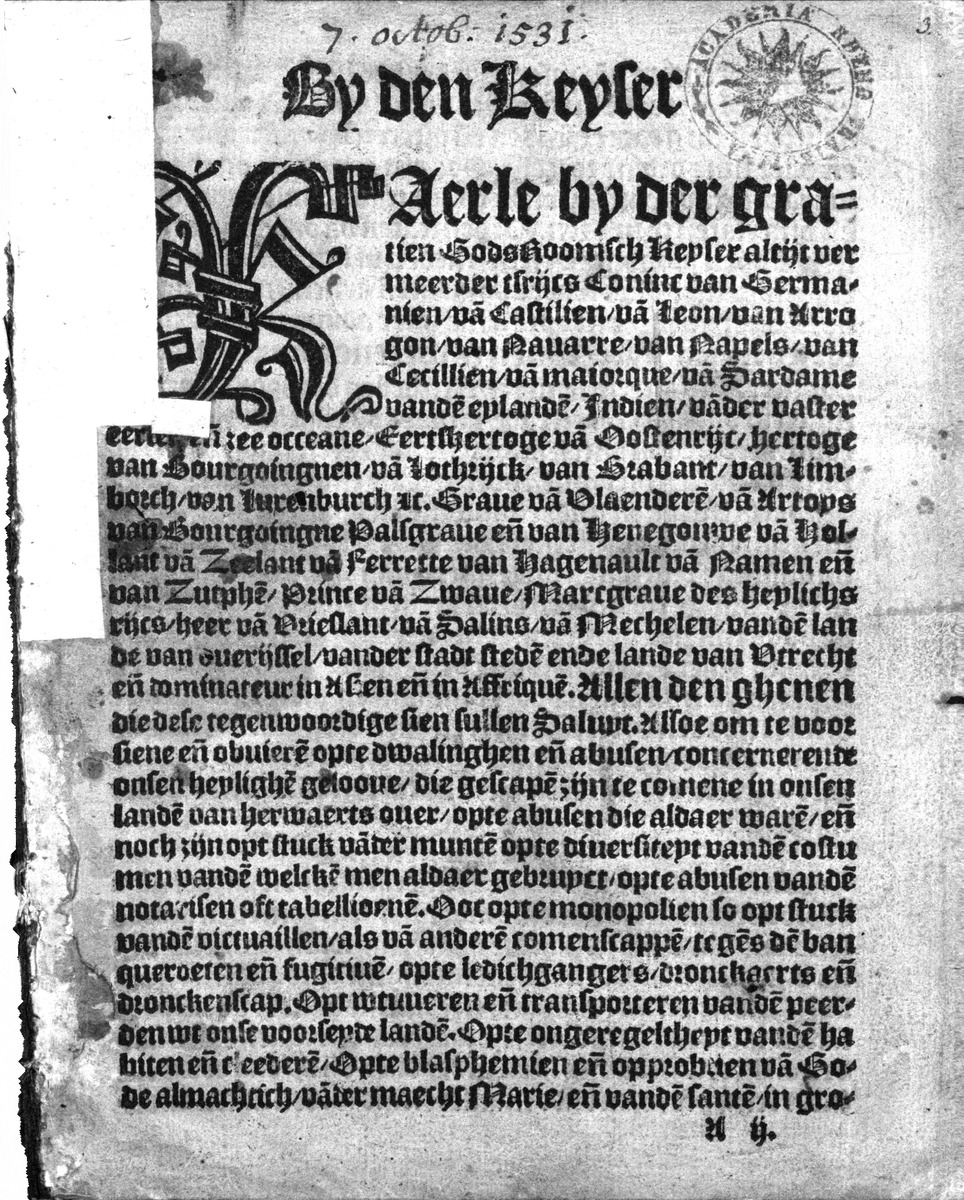 7. octob. 1531.
3.
ACADEMIA RHENO
By den Keyser
KAerle by der gra-
tien Gods Roomsch Keyser altijt ver
meerder tsrijcs Coninc van Germa-
nien/vā Castilien/vā Leon/van Arro
gon/van Nauarre/van Napels/van
Cecillien/vā maiorque/vā Sardame
vandē eylandē/Indien/vāder vaster
eerden eñ zee occeane/Eertshertoge vā Oostenrijc/hertoge
van Bourgoingnen/vā Lothrijck/van Brabant/van Lim-
borch/van Luxenburch ⁊c. Graue vā Vlaenderē/vā Artoys
van Bourgoingne Palsgraue eñ van Henegouwe vā Hol-
lant vā Zeelant vā Ferrette van Hagenault vā Namen eñ
van Zutphē/Prince vā Zwaue/Marcgraue des heylichs
rijcs/heer vā Vrieslant/vā Salins/vā Mechelen/vandē lan
de van ouerijssel/vander stadt stedē ende lande van Vtrecht
eñ dominateur in Asien eñ in Affriquē. Allen den ghenen
die dese tegenwoordige sien sullen Saluyt. Alsoe om te voor
siene eñ obuierē opte dwalinghen eñ abusen/concernerende
onsen heylighē geloove/die gescapē zijn te comene in onsen
landē van herwaerts ouer/opte abusen die aldaer warē/eñ
noch zijn opt stuck vāder muntē opte diuersiteyt vandē costu
men vandē welckē men aldaer gebruyct/opte abusen vandē
notarisen oft tabellionnē. Ooc opte monopolien so opt stuck
vandē victuaillen/als vā anderē comenscappē/tegēs dē ban
queroeten eñ fugitiuē/opte ledichgangers/dronckaerts eñ
dronckenscap. Opt wtuueren eñ transporteren vandē peer-
den wt onse voorseyde landē. Opte ongeregeltheyt vandē ha
biten eñ cleederē/Opte blasphemien eñ opprobrien vā Go-
de almachtich/vāder maecht Marie/eñ vandē santē/in gro-
A ij.